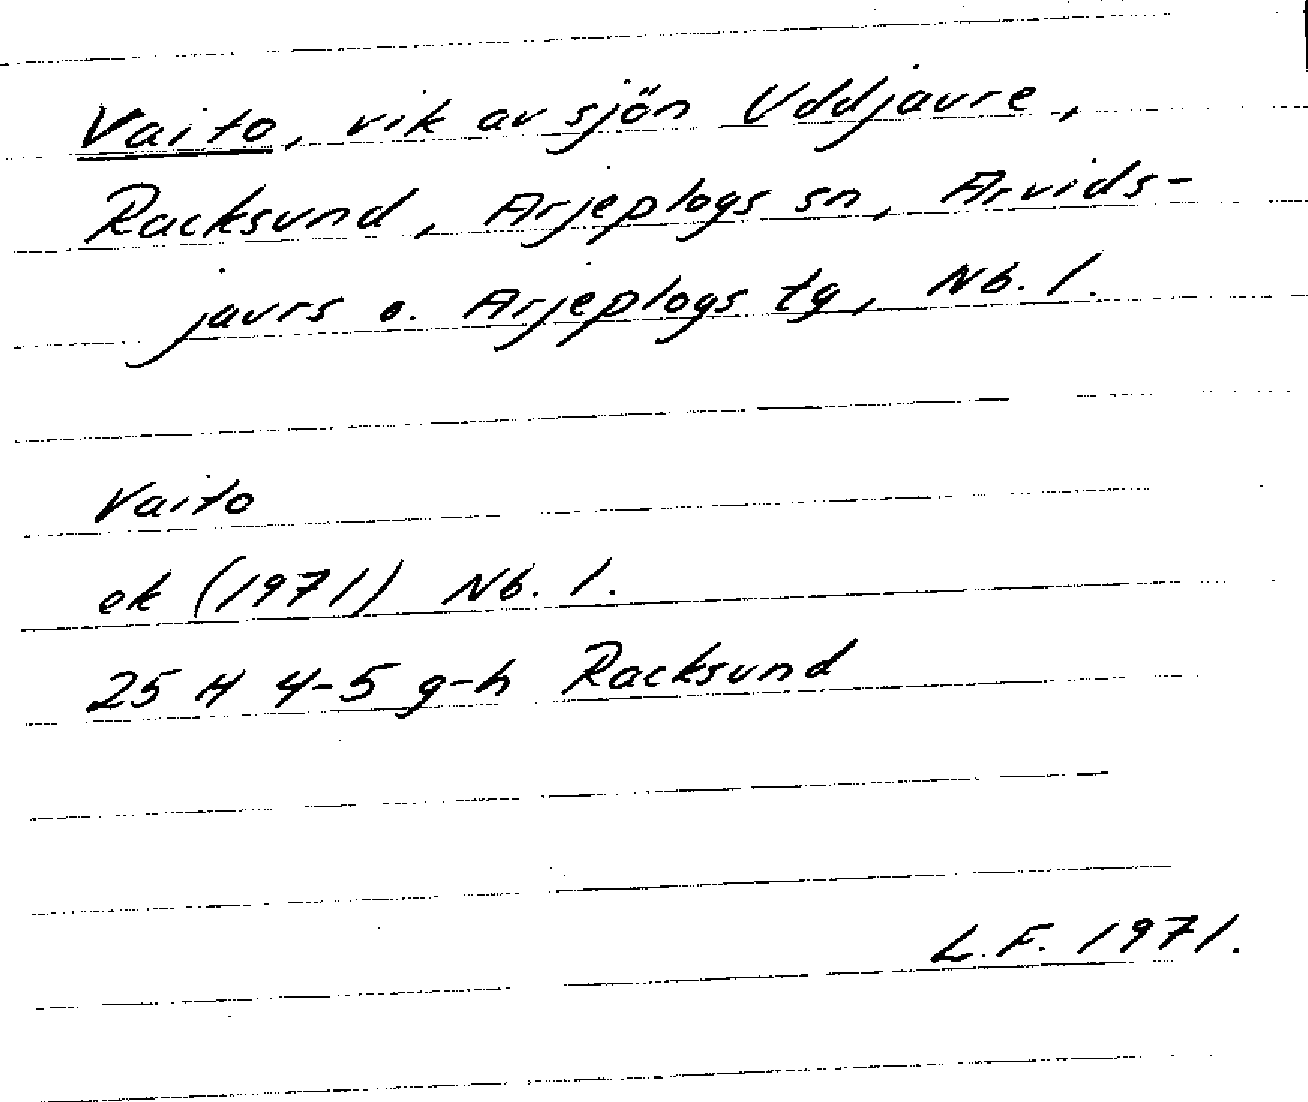 Vaito, vik av sjön Uddjaure,
Racksund, Arjeplogs sn, Arvids-
jaurs o. Arjeplogs tg, Nb. l.
Vaito
ek (1971) Nb. l.
25 H 4-5 g-h Racksund
L.F. 1971.